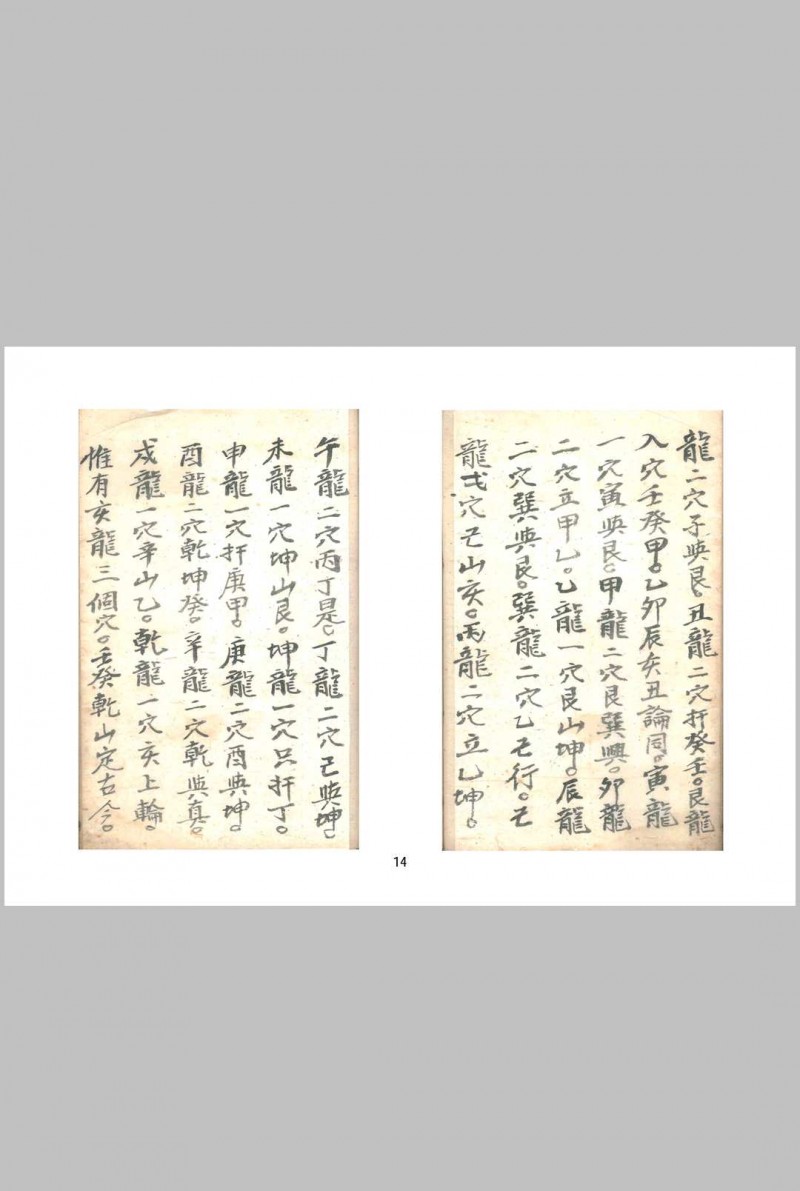 龍二穴子與艮。丑龍二穴扦癸壬。艮龍
入穴壬癸甲。乙卯辰亥丑論同。寅龍
一穴寅與艮。甲龍二穴艮巽興。卯龍
二穴立甲乙。乙龍一穴艮山坤。辰龍
二穴巽與艮。巽龍二穴乙行。
龍穴山亥。丙龍二穴立乙坤。
午龍二穴丙丁是。丁龍二穴與坤。
未龍一穴坤山艮。坤龍一穴只扦丁。
申龍一穴扦庚甲。庚龍二穴酉與坤。
酉龍二穴乾坤癸。辛龍二穴乾與真。
戌龍一穴辛山乙。乾龍一穴亥上輪。
惟有亥龍三個穴。壬癸乾山定古今。
14